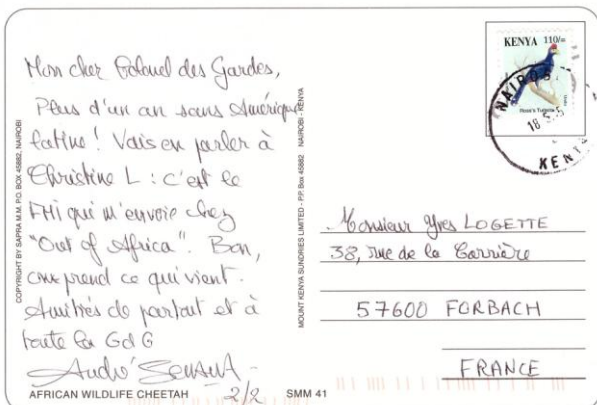 Mon cher Colonel des Gardes,
Plus d'un an sans Amérique
latine ! Vais en parler à
Christine L : c'est le
FMI qui m'envoie chez
"Out of Africa". Bon,
on prend ce qui vient.
Amitiés de partout et à
toute la GdG
André
2/2
AFRICAN WILDLIFE CHEETAH
SMM 41
COPYRIGHT BY SAPRA M.M. P.O. BOX 45882, NAIROBI
MOUNT KENYA SUNDRIES LIMITED - P.P. Box 45882 NAIROBI - KENYA
KENYA 110/=
Ross's Turaco
NAIROBI
18
KENYA
Monsieur Yves LOGETTE
38, rue de la Carrière
57600 FORBACH
FRANCE